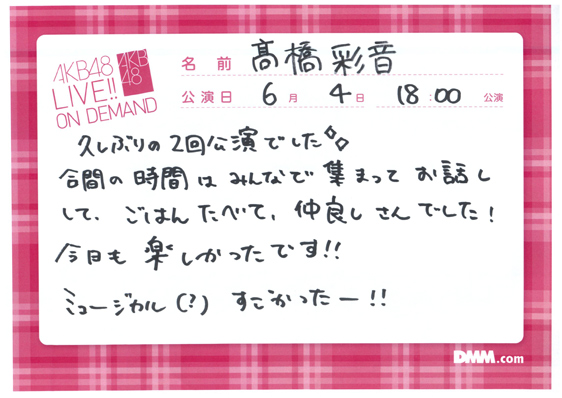 AKB48
LIVE!!
ON DEMAND
AKB
48
名 前 髙橋彩音
公演日 6月 4日 18:00 公演
久しぶりの2回公演でした
合間の時間はみんなで集まってお話し
して、ごはんたべて、仲良しさんでした!
今日も楽しかったです!!
ミュージカル(?) すごかったー!!
DMM.com